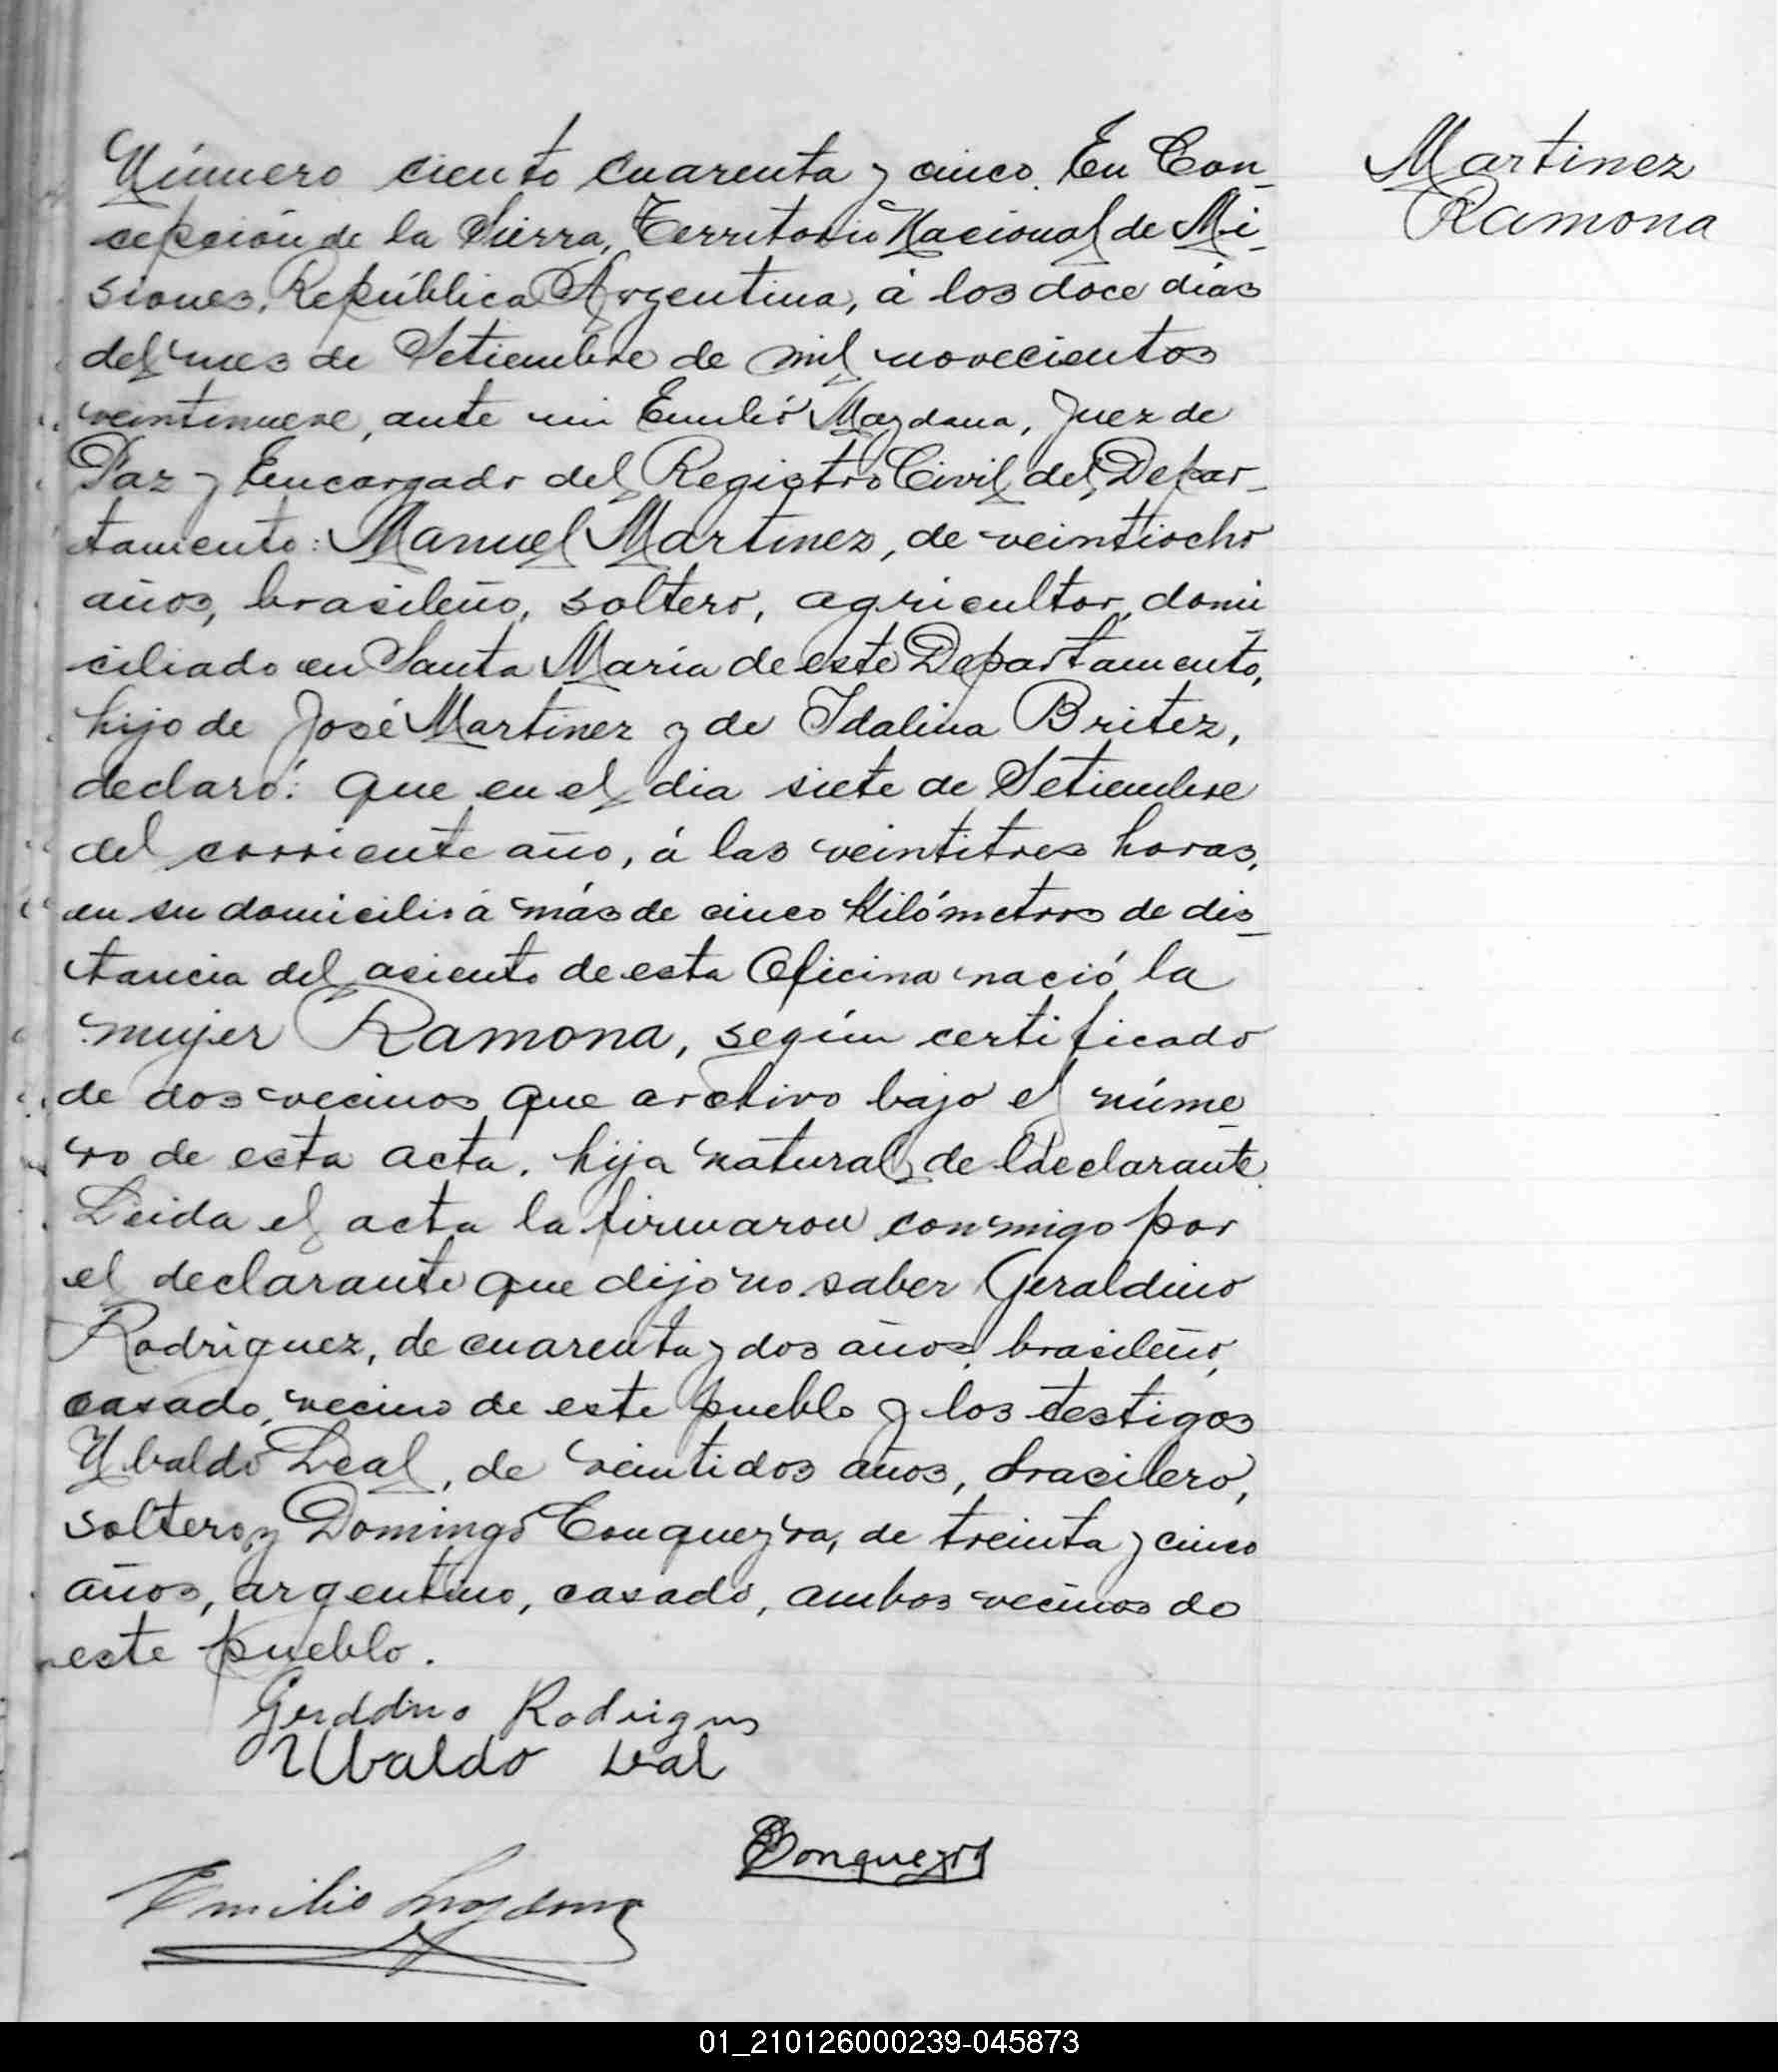 Número ciento cuarenta y cinco. En Con-
cepción de la Sierra, Territorio Nacional de Mi-
siones, República Argentina, á los doce días
del mes de Setiembre de mil novecientos
veintinueve, ante mi Emilio Maydana, Juez de
Paz y Encargado del Registro Civil del Depar-
tamento: Manuel Martinez, de veintiocho
años, brasileño, soltero, agricultor, domi-
ciliado en Santa María de este Departamento,
hijo de José Martinez y de Idalina Britez,
declaró: que en el dia siete de Setiembre
del corriente año, á las veintitres horas,
en su domicilio á más de cinco Kilómetros de dis-
tancia del asiento de esta Oficina nació la
mujer Ramona, según certificado
de dos vecinos que archivo bajo el núme-
ro de esta acta, hija natural de ldeclarante.
Leida el acta la firmaron conmigo por
el declarante que dijo no saber Geraldino
Rodriguez, de cuarenta y dos años, brasileño,
casado, vecino de este pueblo y los testigos
Ubaldo Leal, de veintidos años, brasilero,
soltero, y Domingo Conqueyra, de treinta y cinco
años, argentino, casado, ambos vecinos de
este pueblo.
Martinez
Ramona
Rodrigues
Ubaldo Leal
Emilio Maydana
01_210126000239-045873